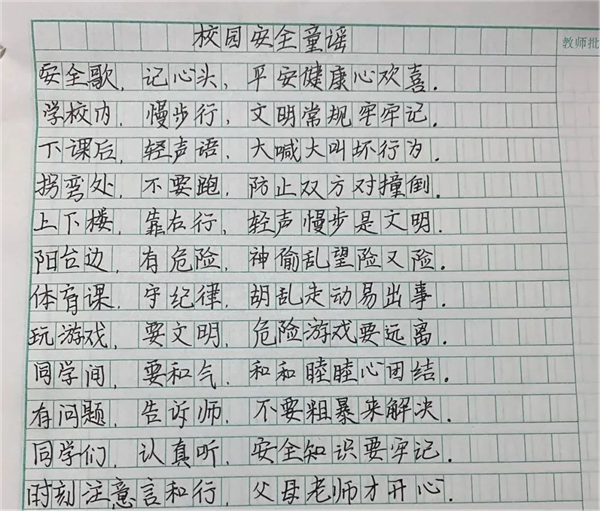 校园安全童谣
教师批
安全歌，记心头，平安健康心欢喜.
学校内，慢步行，文明常规牢牢记.
下课后，轻声语，大喊大叫坏行为.
拐弯处，不要跑，防止双方对撞倒.
上下楼，靠右行，轻声慢步是文明.
阳台边，有危险，神偷乱望险又险.
体育课，守纪律，胡乱走动易出事.
玩游戏，要文明，危险游戏要远离.
同学间，要和气，和和睦睦心团结.
有问题，告诉师，不要粗暴来解决.
同学们，认真听，安全知识要牢记.
时刻注意言和行，父母老师才开心.